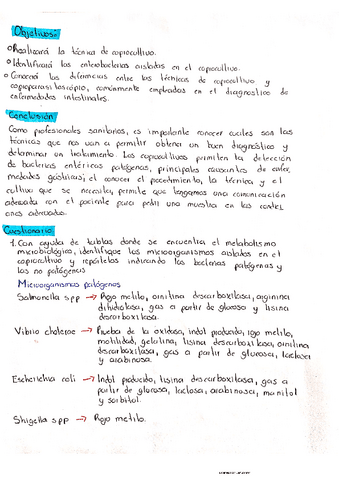 Objetivos:
° Realizará la técnica de coprocultivo.
° Identificará las enterobacterias aisladas en el coprocultivo.
° Conocerá las diferencias entre las técnicas de coprocultivo y
coproparasitoscópio, comúnmente empleadas en el diagnostico de
enfermedades intestinales.
Conclusión:
Como profesionales sanitarios, es importante conocer cuales son las
técnicas que nos van a permitir obtener un buen diagnóstico y
determinar un tratamiento. Los coprocultivos permiten la detección
de bacterias entéricas patógenas, principales causantes de enfer
medades gástricas; el conocer el procedimiento, la técnica y el
cultivo que se necesita, permite que tengamos una comunicación
adecuada con el paciente para pedir una muestra en los conten
ores adecuados.
Cuestionario:
1. Con ayuda de tablas donde se encuentra el metabolismo
microbiológico, identifique los microorganismos aislados en el
coprocultivo y repórtelos indicando las bacterias patógenas y
las no patógenas
Microorganismos patógenos
Salmonella spp → Rojo metilo, ornitina descarboxilasa, arginina
dihidolasa, gas a partir de glucosa y lisina
descarboxilasa.
Vibrio cholerae → Prueba de la oxidasa, indol producido, rojo metilo,
motilidad, gelatina, lisina descarboxilasa, ornitina
descarboxilasa, gas a partir de glucosa, lactosa
y arabinosa.
Escherichia coli → Indol producido, lisina descarboxilasa, gas a
partir de glucosa, lactosa, arabinosa, manitol
y sorbitol.
Shigella spp → Rojo metilo.